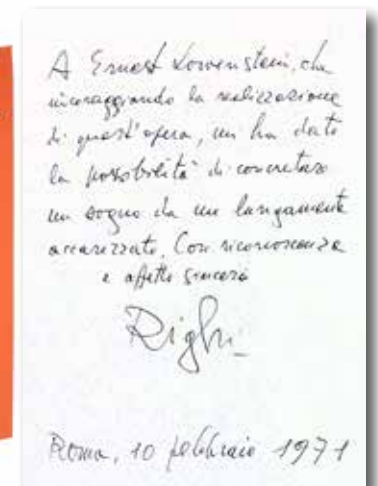 A Ernest Lowenstein, che
incoraggiando la realizzazione
di quest'opera, mi ha dato
la possibilità di concretare
un sogno da me lungamente
accarezzato. Con riconoscenza
e affetto sincero
Righi
Roma, 10 febbraio 1971